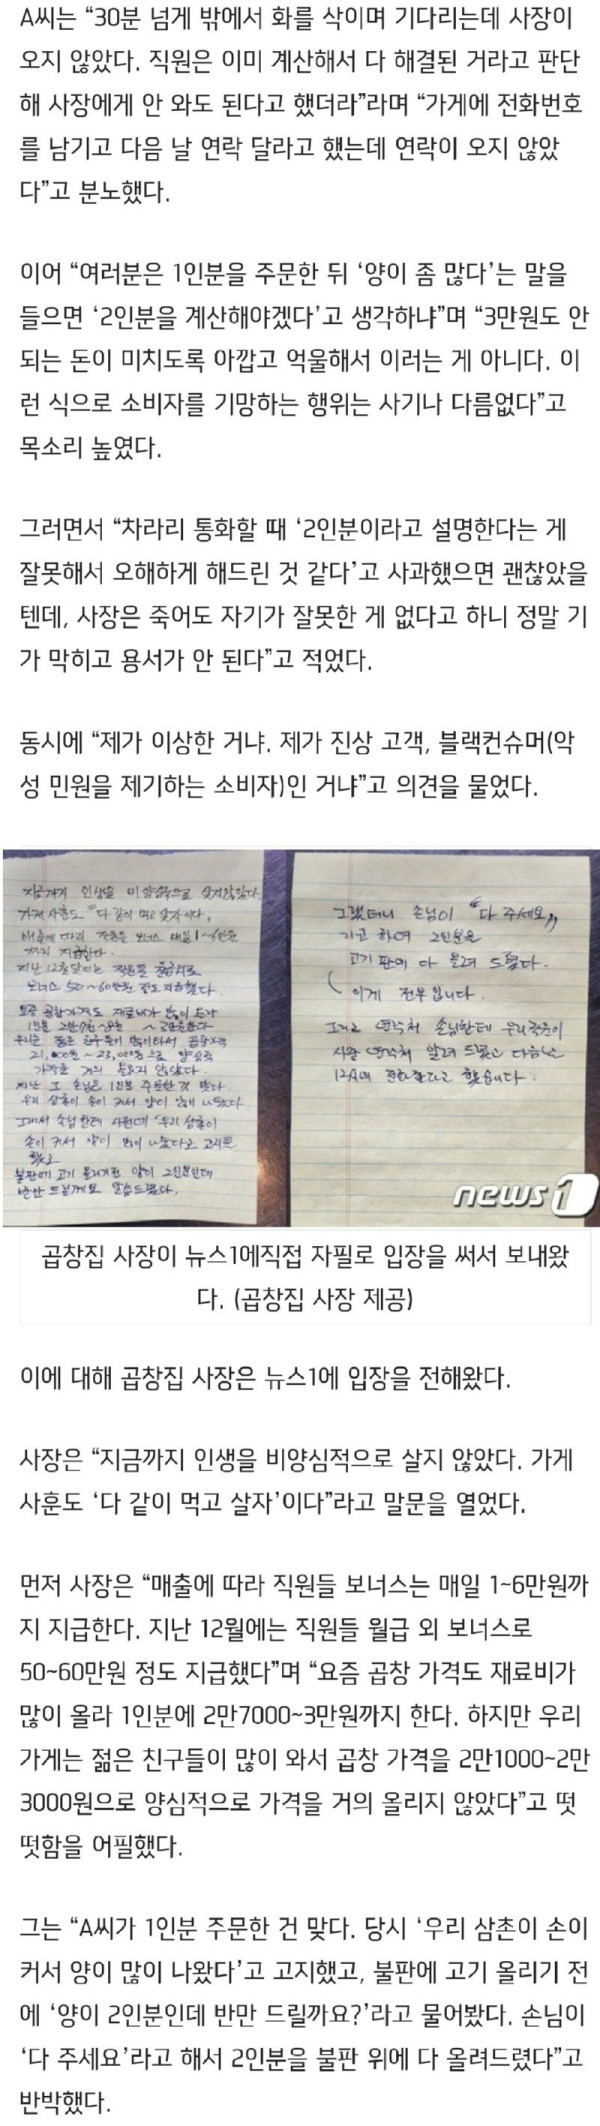 A씨는 “30분 넘게 밖에서 화를 삭이며 기다리는데 사장이
오지 않았다. 직원은 이미 계산해서 다 해결된 거라고 판단
해 사장에게 안 와도 된다고 했더라”라며 “가게에 전화번호
를 남기고 다음 날 연락 달라고 했는데 연락이 오지 않았
다”고 분노했다.
이어 “여러분은 1인분을 주문한 뒤 ‘양이 좀 많다’는 말을
들으면 ‘2인분을 계산해야겠다’고 생각하냐”며 “3만원도 안
되는 돈이 미치도록 아깝고 억울해서 이러는 게 아니다. 이
런 식으로 소비자를 기망하는 행위는 사기나 다름없다”고
목소리 높였다.
그러면서 “차라리 통화할 때 ‘2인분이라고 설명한다는 게
잘못해서 오해하게 해드린 것 같다’고 사과했으면 괜찮았을
텐데, 사장은 죽어도 자기가 잘못한 게 없다고 하니 정말 기
가 막히고 용서가 안 된다”고 적었다.
동시에 “제가 이상한 거냐. 제가 진상 고객, 블랙컨슈머(악
성 민원을 제기하는 소비자)인 거냐”고 의견을 물었다.
지금까지 인생을 비양심적으로 살지 않았다.
가게 사훈도 “다 같이 먹고 살자”이다.
매출에 따라 직원들 보너스 매일 1~6만원
까지 지급한다.
지난 12월달에는 직원들 월급외로
보너스 50~60만원 정도 지급했다.
요즘 곱창가격도 재료비가 많이 올라
1인분 2만7천~3만원
우리는 젊은 친구들이 많이와서 곱창가격
21,000원~23,000원으로 양심적
가격을 거의 올리지 않았다.
지난 그 손님은 1인분 주문한 것 맞다.
우리 삼촌이 손이 커서 양이 많이 나왔다
그래서 손님한테 사전에 “우리 삼촌이
손이 커서 양이 많이 나왔다고 고지를
했고
불판에 고기 올리기전 양이 2인분인데
반만 드릴께요 말씀드렸다.
그랬더니 손님이 “다 주세요”
라고 하여 2인분을
고기 판에 다 올려 드렸다.
이게 전부입니다.
그리고 연락처 손님한테 우리직원이
사장 연락처 알려 드렸고 다음날
12시에 전화한다고 했습니다.
news1
곱창집 사장이 뉴스1에직접 자필로 입장을 써서 보내왔
다. (곱창집 사장 제공)
이에 대해 곱창집 사장은 뉴스1에 입장을 전해왔다.
사장은 “지금까지 인생을 비양심적으로 살지 않았다. 가게
사훈도 ‘다 같이 먹고 살자’이다”라고 말문을 열었다.
먼저 사장은 “매출에 따라 직원들 보너스는 매일 1~6만원까
지 지급한다. 지난 12월에는 직원들 월급 외 보너스로
50~60만원 정도 지급했다”며 “요즘 곱창 가격도 재료비가
많이 올라 1인분에 2만7000~3만원까지 한다. 하지만 우리
가게는 젊은 친구들이 많이 와서 곱창 가격을 2만1000~2만
3000원으로 양심적으로 가격을 거의 올리지 않았다”고 떳
떳함을 어필했다.
그는 “A씨가 1인분 주문한 건 맞다. 당시 ‘우리 삼촌이 손이
커서 양이 많이 나왔다’고 고지했고, 불판에 고기 올리기 전
에 ‘양이 2인분인데 반만 드릴까요?’라고 물어봤다. 손님이
‘다 주세요’라고 해서 2인분을 불판 위에 다 올려드렸다”고
반박했다.